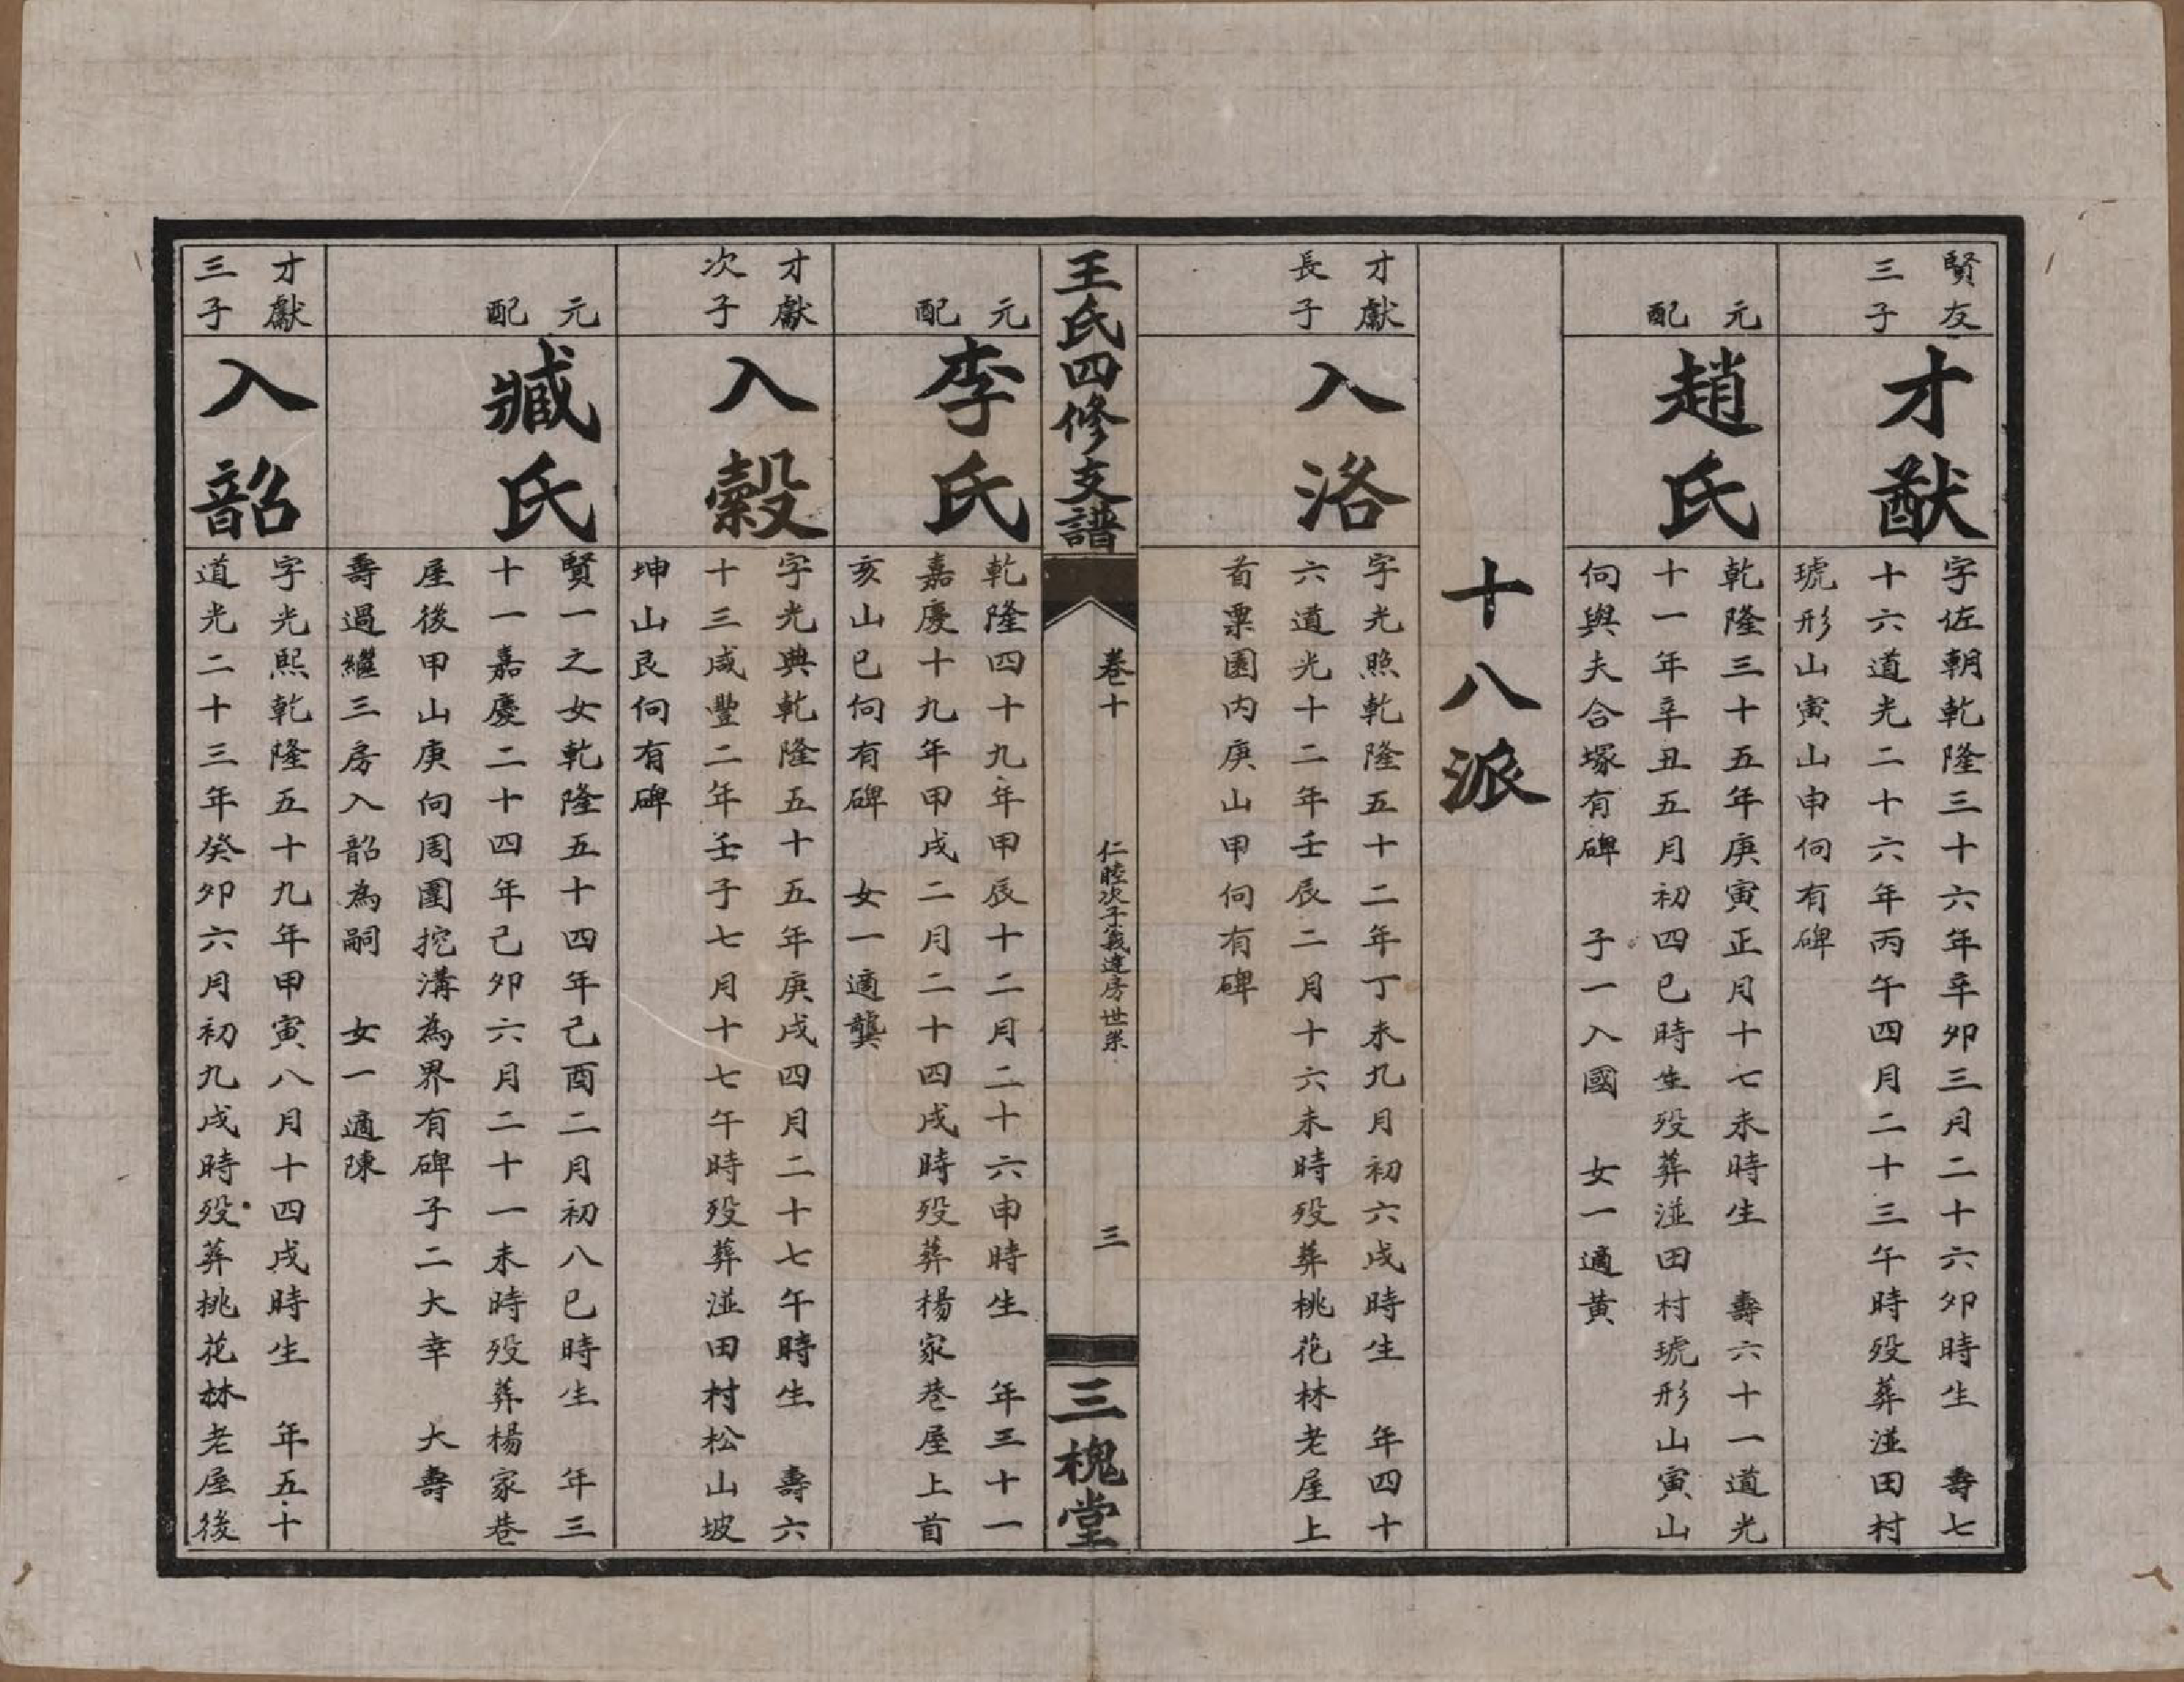 賢友
三子
才猷
字佐朝乾隆三十六年辛卯三月二十六卯時生　壽七
十六道光二十六年丙午四月二十三午時歿葬湴田村
琥形山寅山申向有碑
元
配
趙氏
乾隆三十五年庚寅正月十七未時生　壽六十一道光
十一年辛丑五月初四巳時生歿葬湴田村琥形山寅山
向與夫合塚有碑　子一入國　女一適黃
十八派
才獻
長子
入洛
字光照乾隆五十二年丁未九月初六戌時生　年四十
六道光十二年壬辰二月十六未時歿葬桃花林老屋上
首粟園内庚山甲向有碑
王氏四修支譜
卷十
仁睦次子義達房世系
三
三槐堂
元
配
李氏
乾隆四十九年甲辰十二月二十六申時生　年三十一
嘉慶十九年甲戌二月二十四戌時歿葬楊家巷屋上首
亥山巳向有碑　女一適龔
才獻
次子
入榖
字光典乾隆五十五年庚戌四月二十七午時生　壽六
十三咸豐二年壬子七月十七午時歿葬湴田村松山坡
坤山艮向有碑
元
配
臧氏
賢一之女乾隆五十四年己酉二月初八巳時生　年三
十一嘉慶二十四年己卯六月二十一未時歿葬楊家巷
屋後甲山庚向周圍挖溝為界有碑子二大幸　大壽
壽過繼三房入韶為嗣　女一適陳
才獻
三子
入韶
字光熙乾隆五十九年甲寅八月十四戌時生　年五十
道光二十三年癸卯六月初九戌時歿葬桃花林老屋後